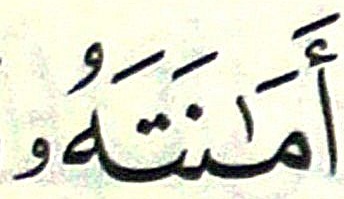 أَمَـٰنَتَهُۥ